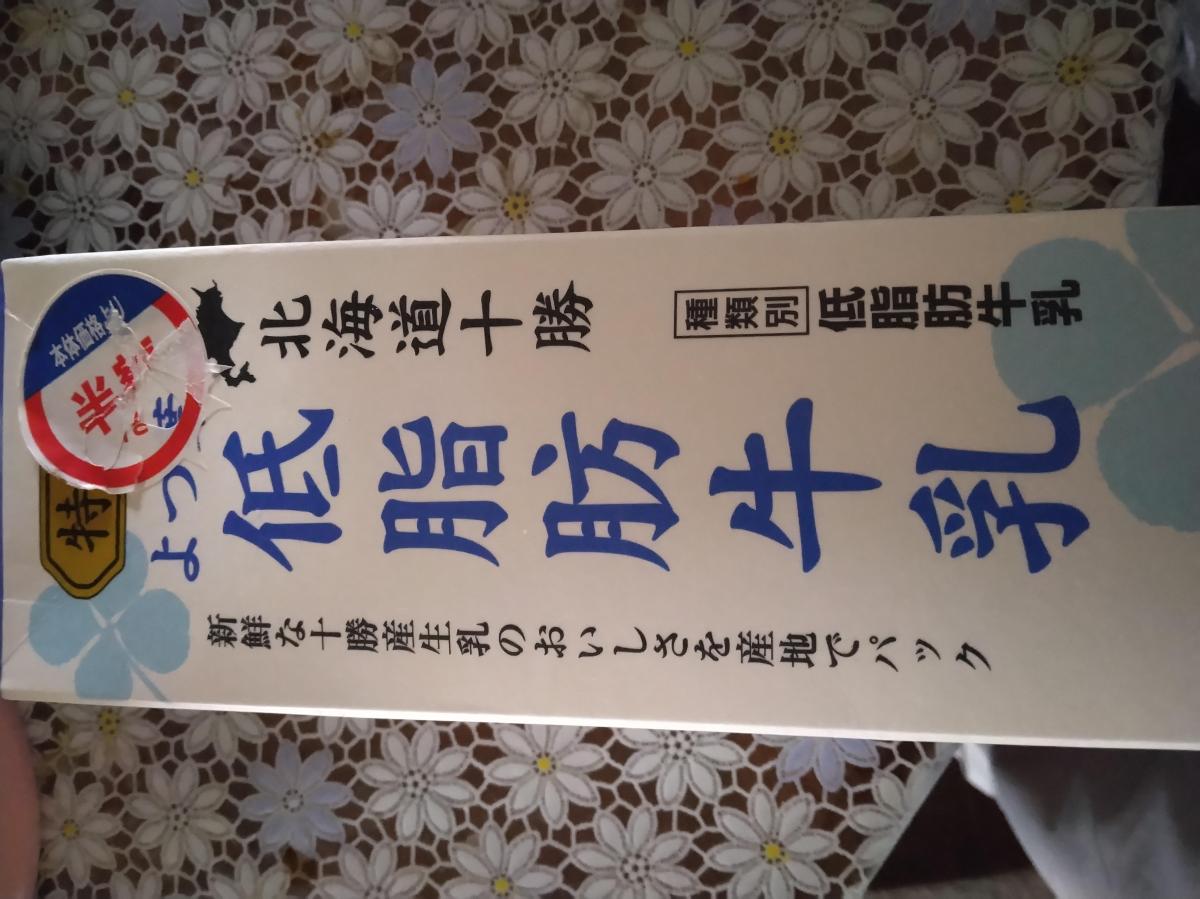 本体価格より
半額
特
北海道十勝
種類別 低脂肪牛乳
よつ
低脂肪牛乳
新鮮な十勝産生乳のおいしさを産地でパック